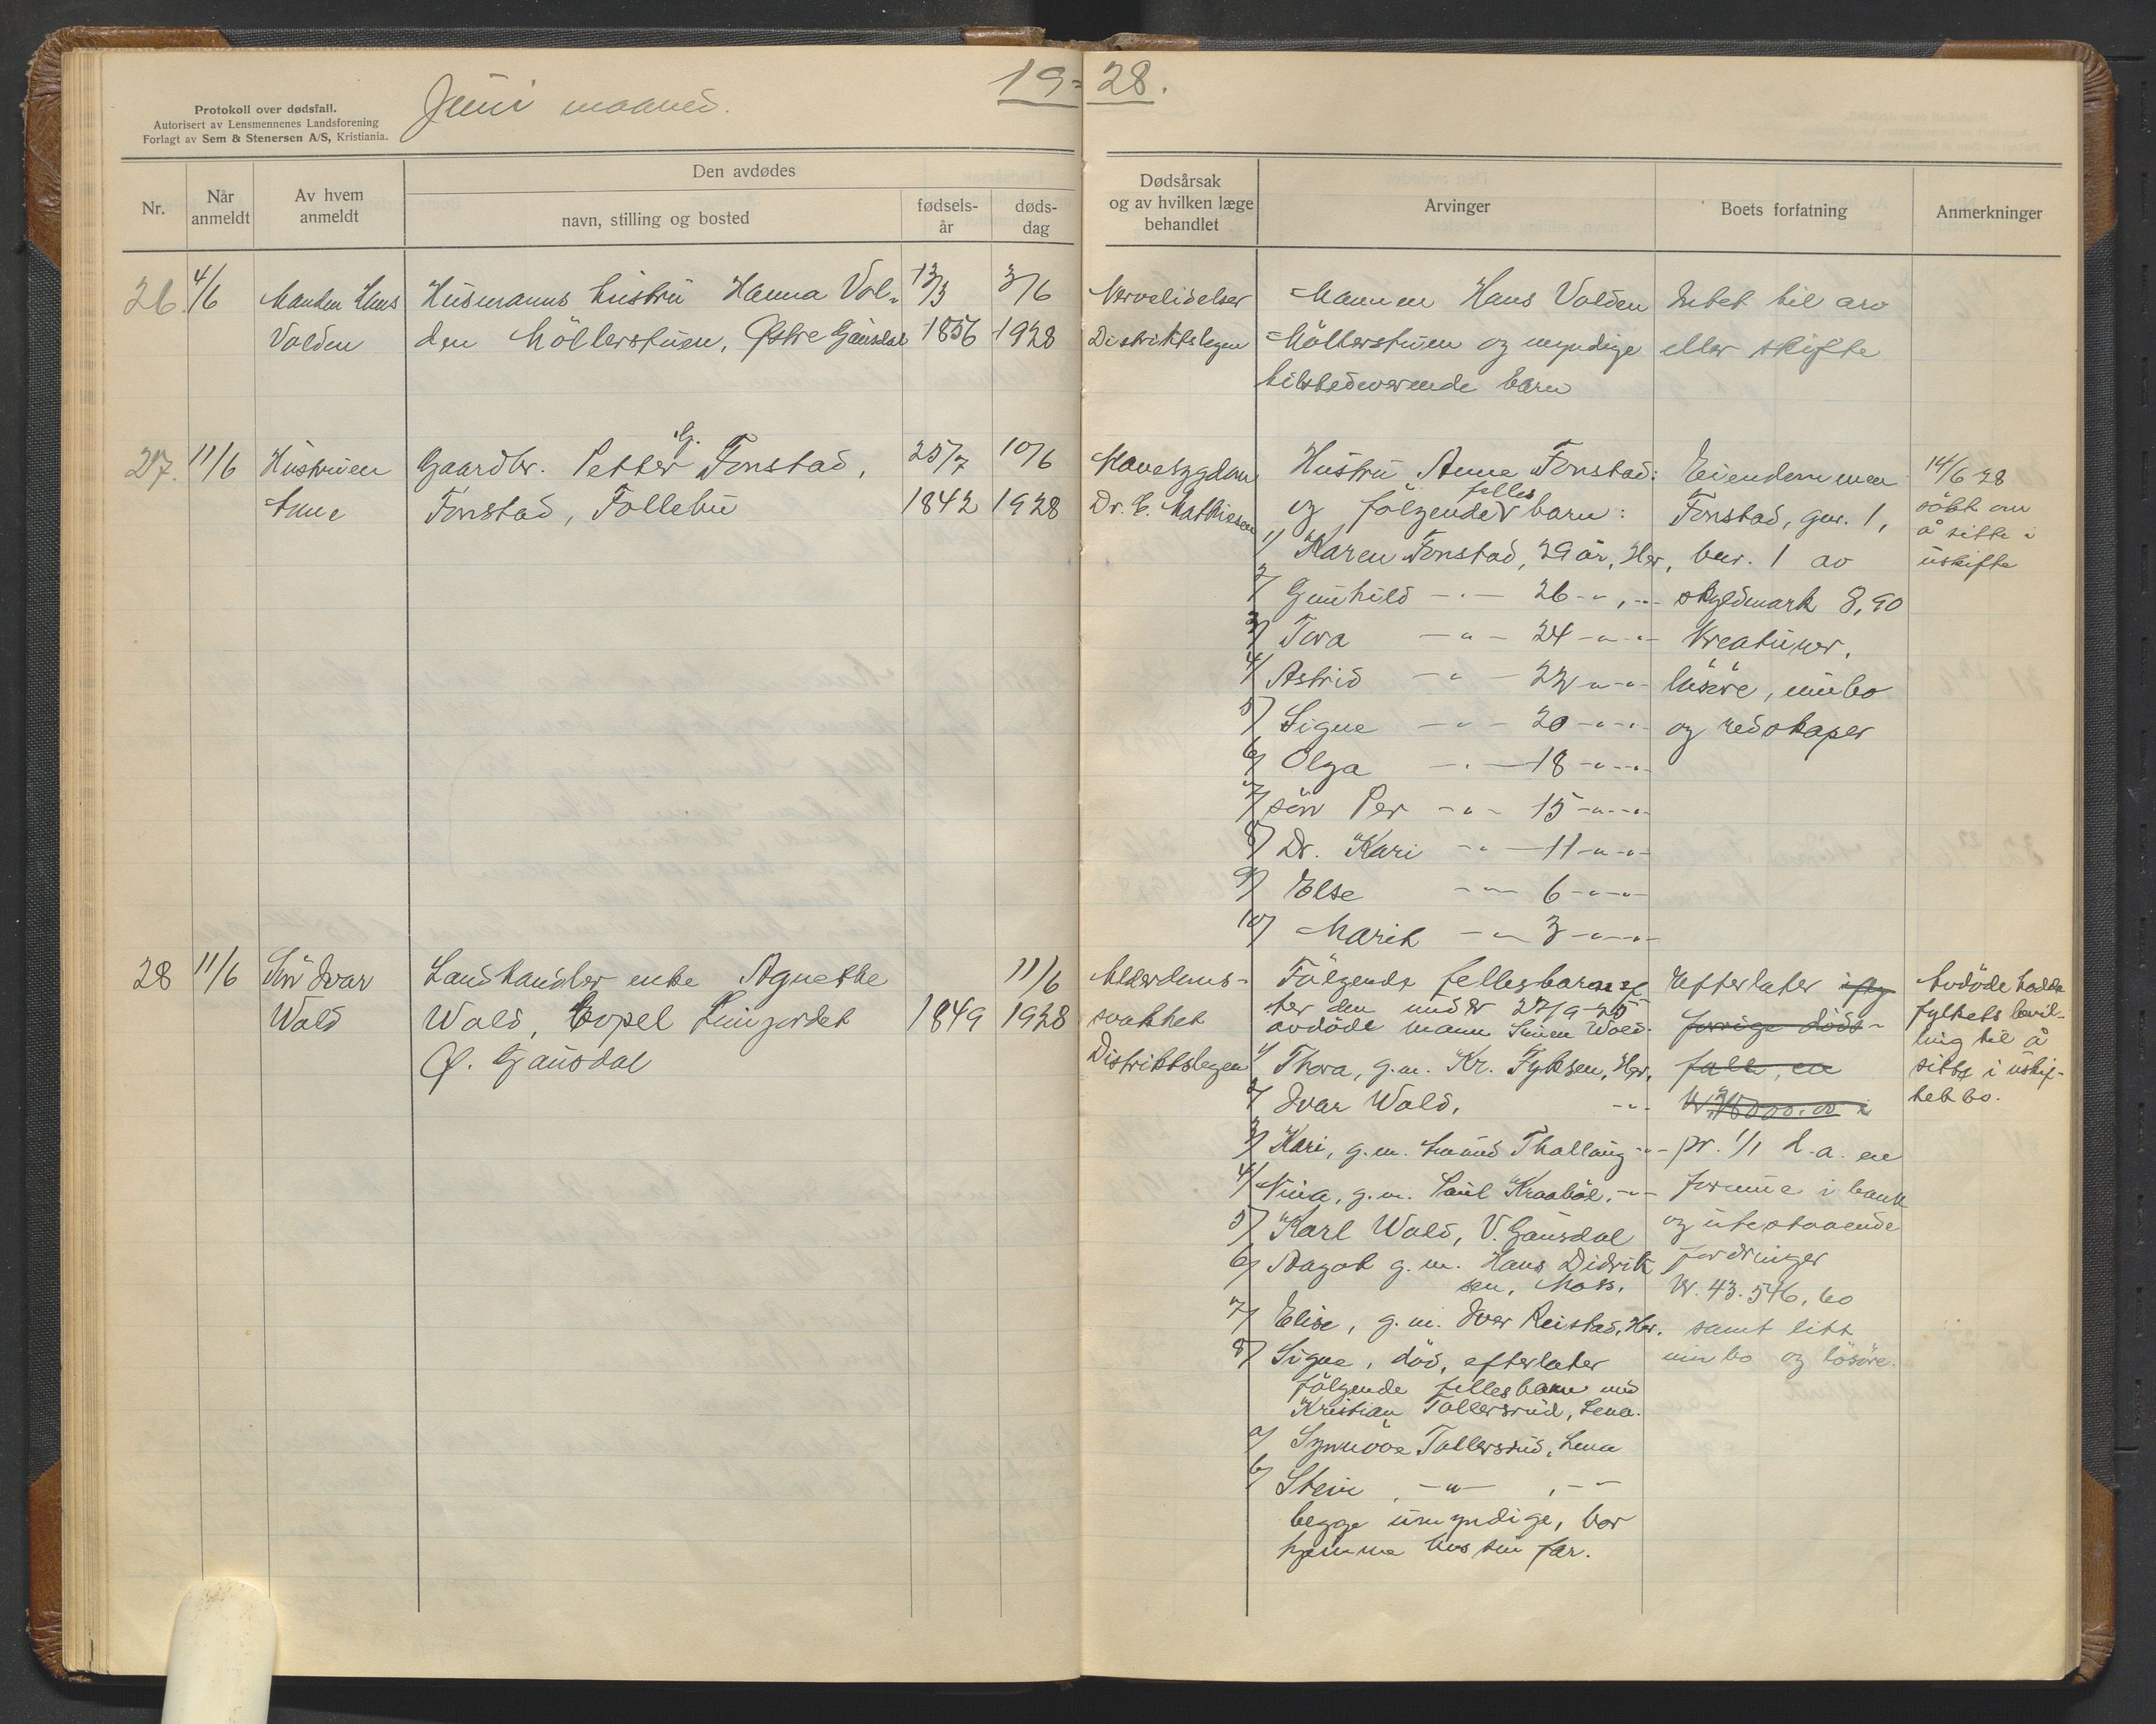 Protokoll over dødsfall.
Autorisert av Lensmennenes Landsforening
Forlagt av Sem & Stenersen A/S, Kristiania.
Juni maaned.
19-28.
Nr.
Når anmeldt
Av hvem anmeldt
Den avdødes
navn, stilling og bosted
fødsels-år
døds-dag
Dødsårsak og av hvilken læge behandlet
Arvinger
Boets forfatning
Anmerkninger
26. 4/6
Manden Hans
Volden
Husmanns hustru Hanna Vol-
den Möllerstuen, Østre Gausdal
13/3
1856
3/6
1928
Nervelidelser
Distriktslegen
Mannen Hans Volden
Möllerstuen og myndige
tilstedeværende barn
Intet til arv
eller skifte
27. 11/6
Hustruen
Anne
Gaardbr. Petter G. Fonstad,
Fonstad, Follebu
25/7
1842
10/6
1928
Mavesygdom
Dr. E. Mathiesen
Hustru Anne Fonstad:
og følgende felles barn:
1/ Karen Fonstad, 29 år, Her,
2/ Gunhild -"- 26 -"-, -"-
3/ Tora -"- 24 -"- -"-
4/ Astrid -"- 22 -"- -"-
5/ Signe -"- 20 -"- -"-
6/ Olga -"- 18 -"- -"-
7/ sön Per -"- 15 -"- -"-
8/ Dr. Kari -"- 11 -"- -"-
9/ Else -"- 6 -"- -"-
10/ Marit -"- 3 -"- -"-
Eiendommen
Fonstad, gnr. 1,
bnr. 1 av
skyldmark 8,90
Kreaturer,
lösöre, innbo
og redskaper
14/6 28
sökt om
å sitte i
uskifte
28 11/6
Sön Ivar
Wold
Landhandler enke Agnethe
Wold, Kopel Linjordet
Ø. Gausdal
1849
11/6
1928
Alderdoms-
svakhet
Distriktslegen
Følgende fellesbarn ef
ter den under 27/9-25
avdöde mann Simen Wold.
1/ Thora, g.m. Kr. Fyksen, Her,
2/ Ivar Wold, -"-
3/ Kari, g.m. Amund Thallaug -"-
4/ Nina, g.m. Paul Kraaböl, -"-
5/ Karl Wold, V. Gausdal
6/ Aagot g.m. Hans Didrik
sen, Moss.
7/ Elise, g.m. Iver Reistad, Her.
8/ Signe, död, efterlater
følgende felles barn med
Kristian Tollersrud, Lena.
a/ Synnöve Tollersrud, Lena
b/ Stein, -"-, -"-
begge umyndige, bor
hjemme hos sin far.
Efterlater
forrige döds-
fall, en
pr. 1/1 d.a. en
formue i bank
og utestaaende
fordringer
kr. 43.546,60
samt litt
innbo og lösöre.
Avdöde hadde
fylkets bevil-
ling til å
sitte i uskif-
tet bo.